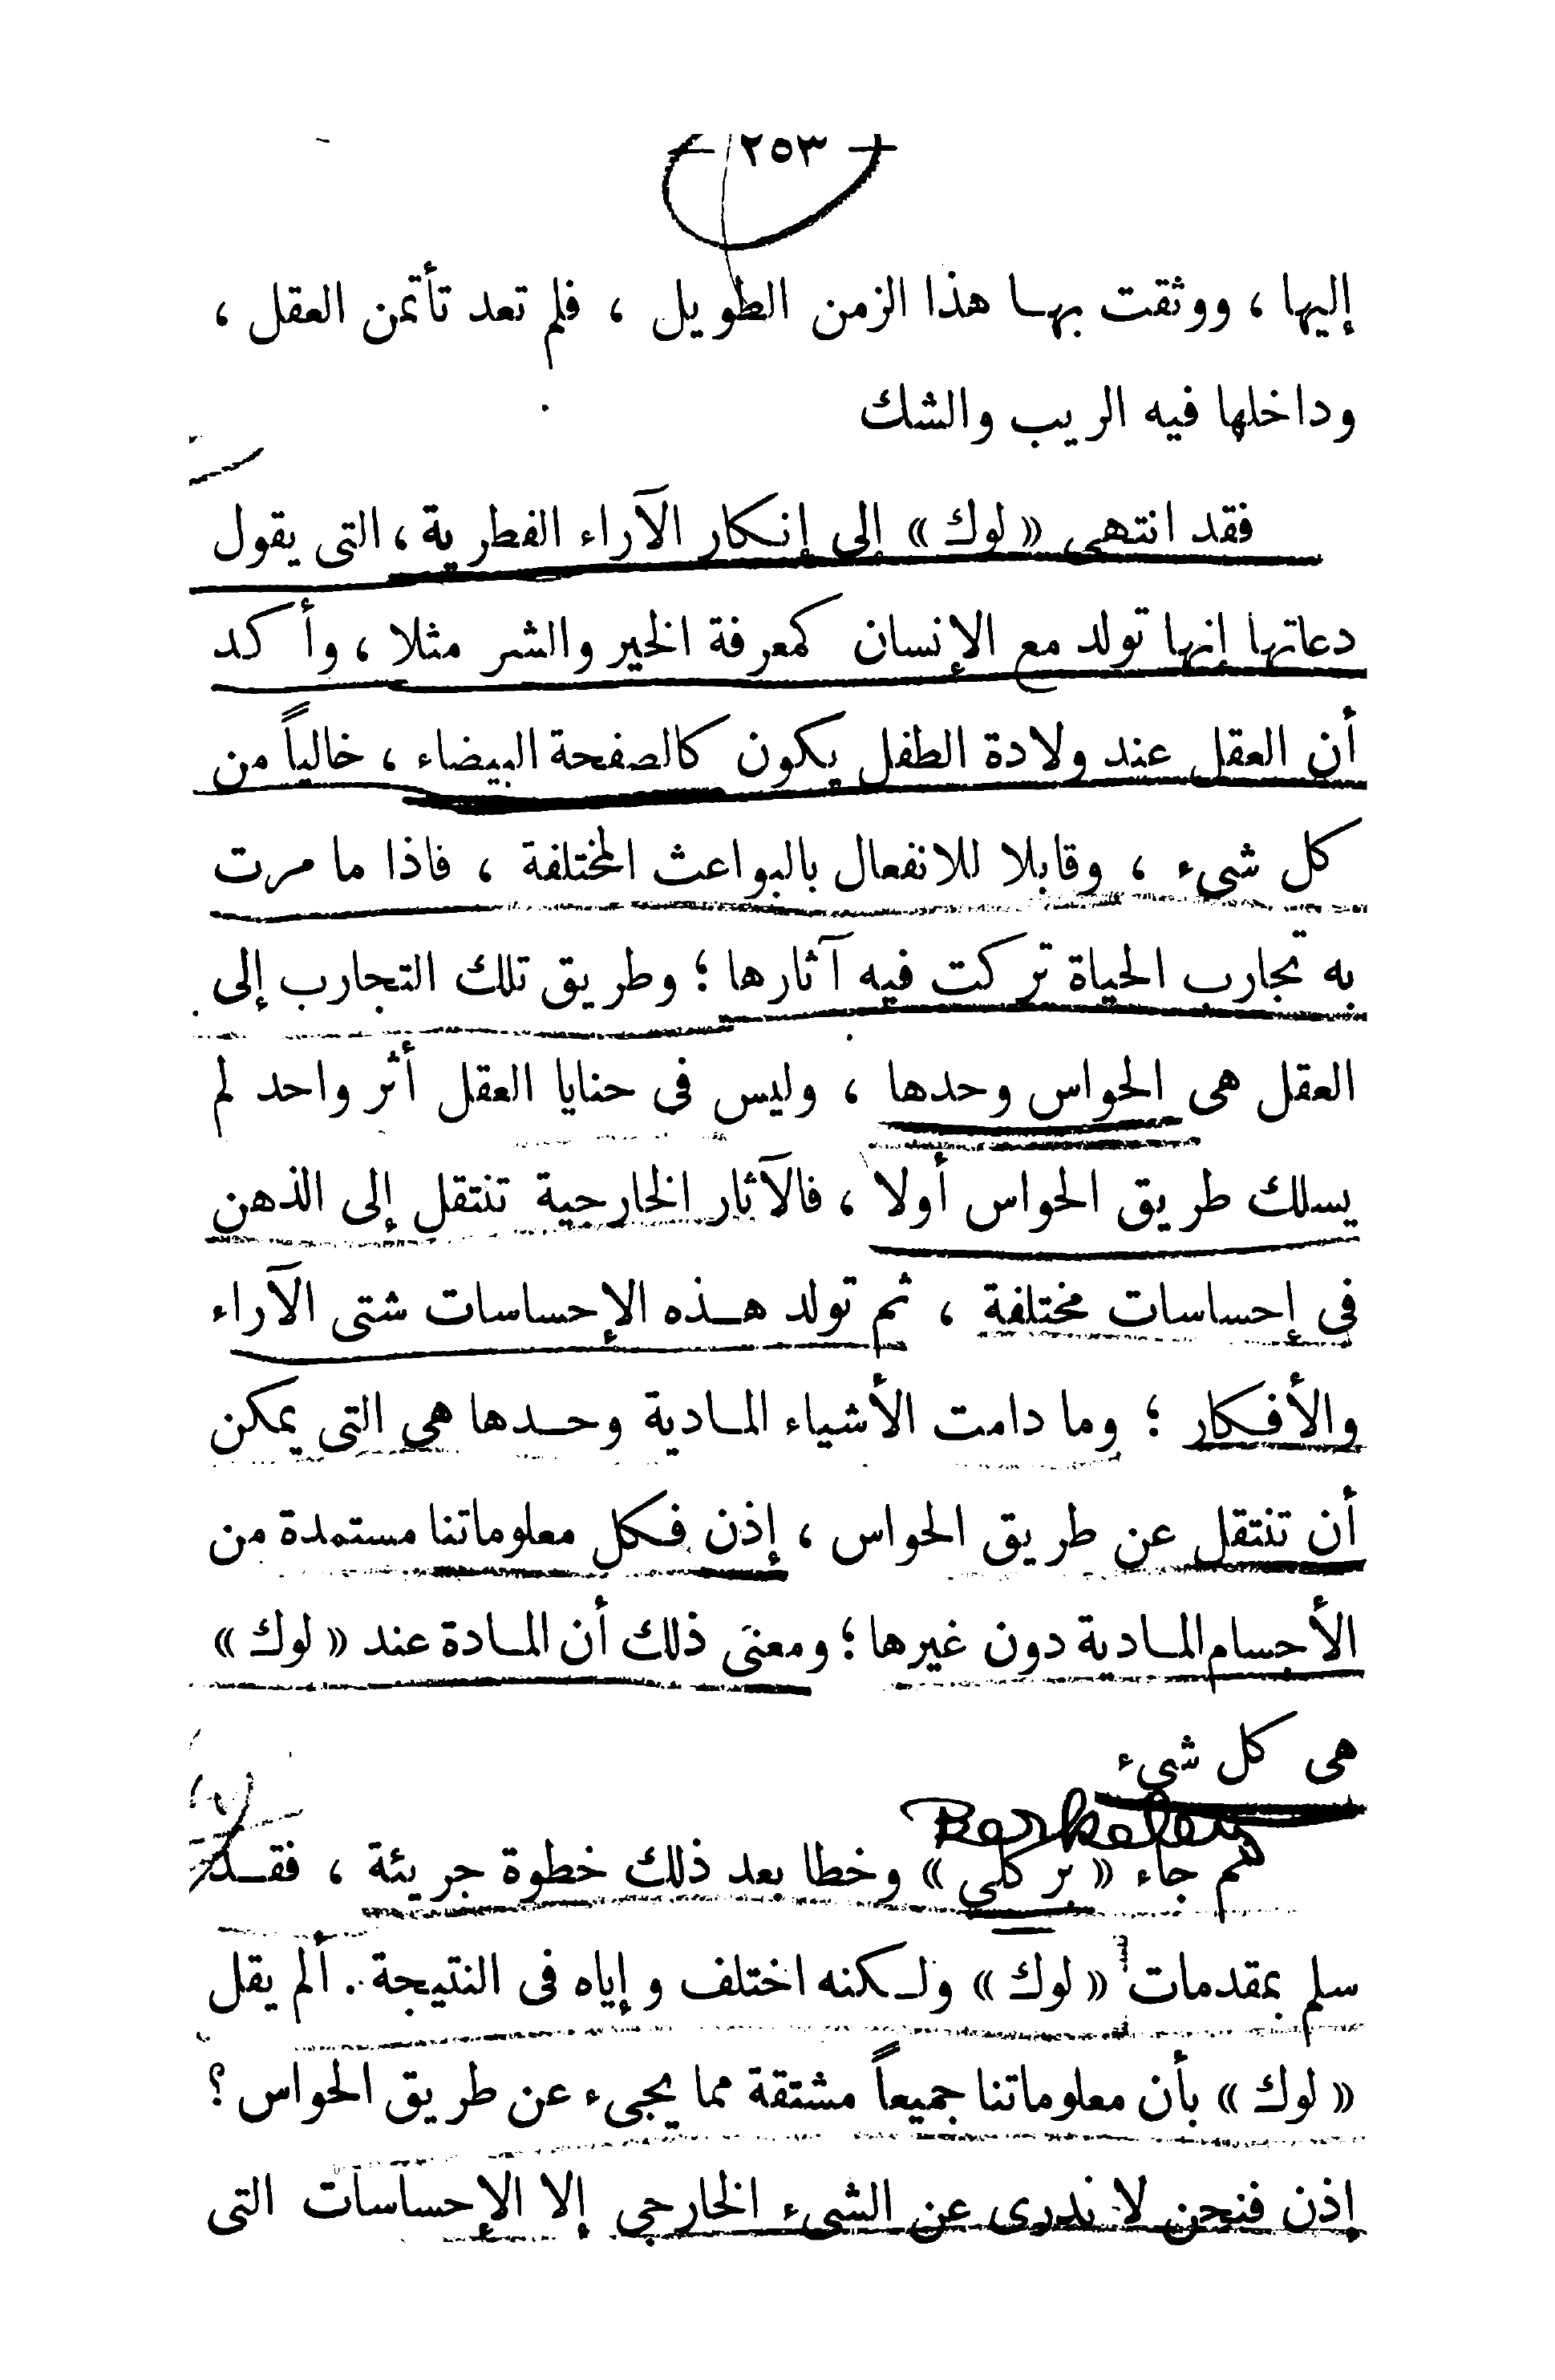 — ٢٥٣ —
إليها ، ووثقت بهـا هذا الزمن الطويل ، فلم تعد تأتمن العقل ،
وداخلها فيه الريب والشك
فقد انتهى « لوك » إلى إنـكار الآراء الفطرية ، التى يقول
دعاتها إنها تولد مع الإنسان كمعرفة الخير والشر مثلا ، وأكد
أن العقل عند ولادة الطفل يكون كالصفحة البيضاء ، خالياً من
كل شىء ، وقابلا للانفعال بالبواعث المختلفة ، فاذا ما مرت
به تجارب الحياة تركت فيه آثارها ؛ وطريق تلك التجارب إلى
العقل هى الحواس وحدها ، وليس فى حنايا العقل أثر واحد لم
يسلك طريق الحواس أولا ، فالآثار الخارجية تنتقل إلى الذهن
فى إحساسات مختلفة ، ثم تولد هـذه الإحساسات شتى الآراء
والأفـكار ؛ وما دامت الأشياء المـادية وحـدها هى التى يمكن
أن تنتقل عن طريق الحواس ، إذن فـكل معلوماتنا مستمدة من
الأجسام المـادية دون غيرها ؛ ومعنى ذلك أن المـادة عند « لوك »
هى كل شىء
Berkeley
ثم جاء « بركلي » وخطا بعد ذلك خطوة جريئة ، فقـد
سلم بمقدمات « لوك » ولـكنه اختلف وإياه فى النتيجة . ألم يقل
« لوك » بأن معلوماتنا جميعاً مشتقة مما يجىء عن طريق الحواس ؟
إذن فنحن لا ندرى عن الشىء الخارجى إلا الإحساسات التى